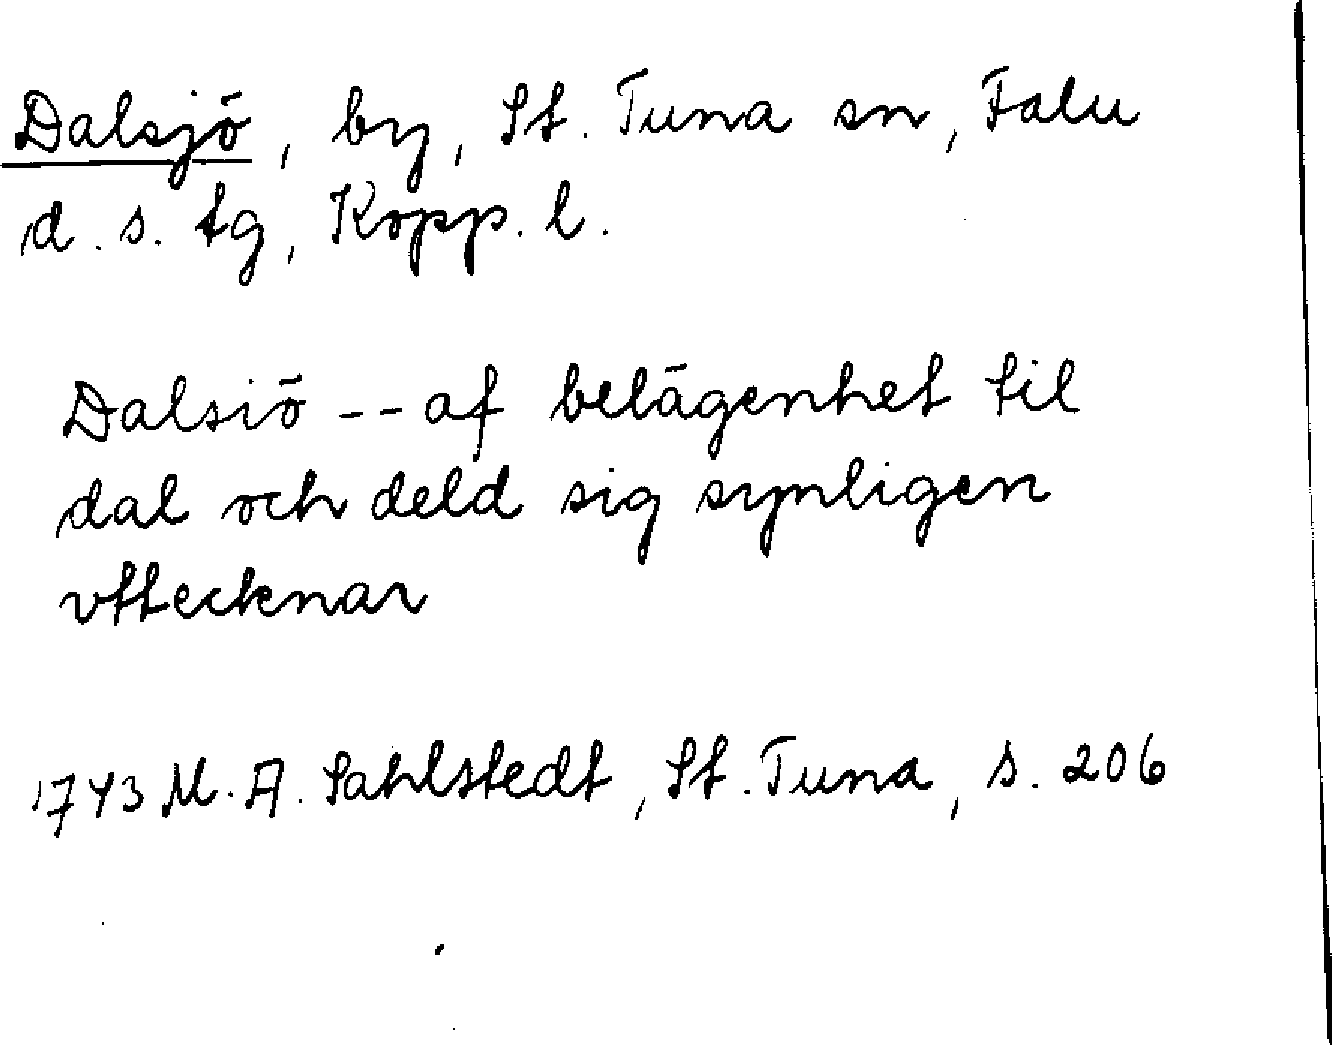 Dalsjö, by, St. Tuna sn, Falu
d. s. tg, Kopp. l.
Dalsiö -- af belägenhet til
dal och deld sig synligen
vttecknar
1743 M. A. Sahlstedt, St. Tuna, s. 206